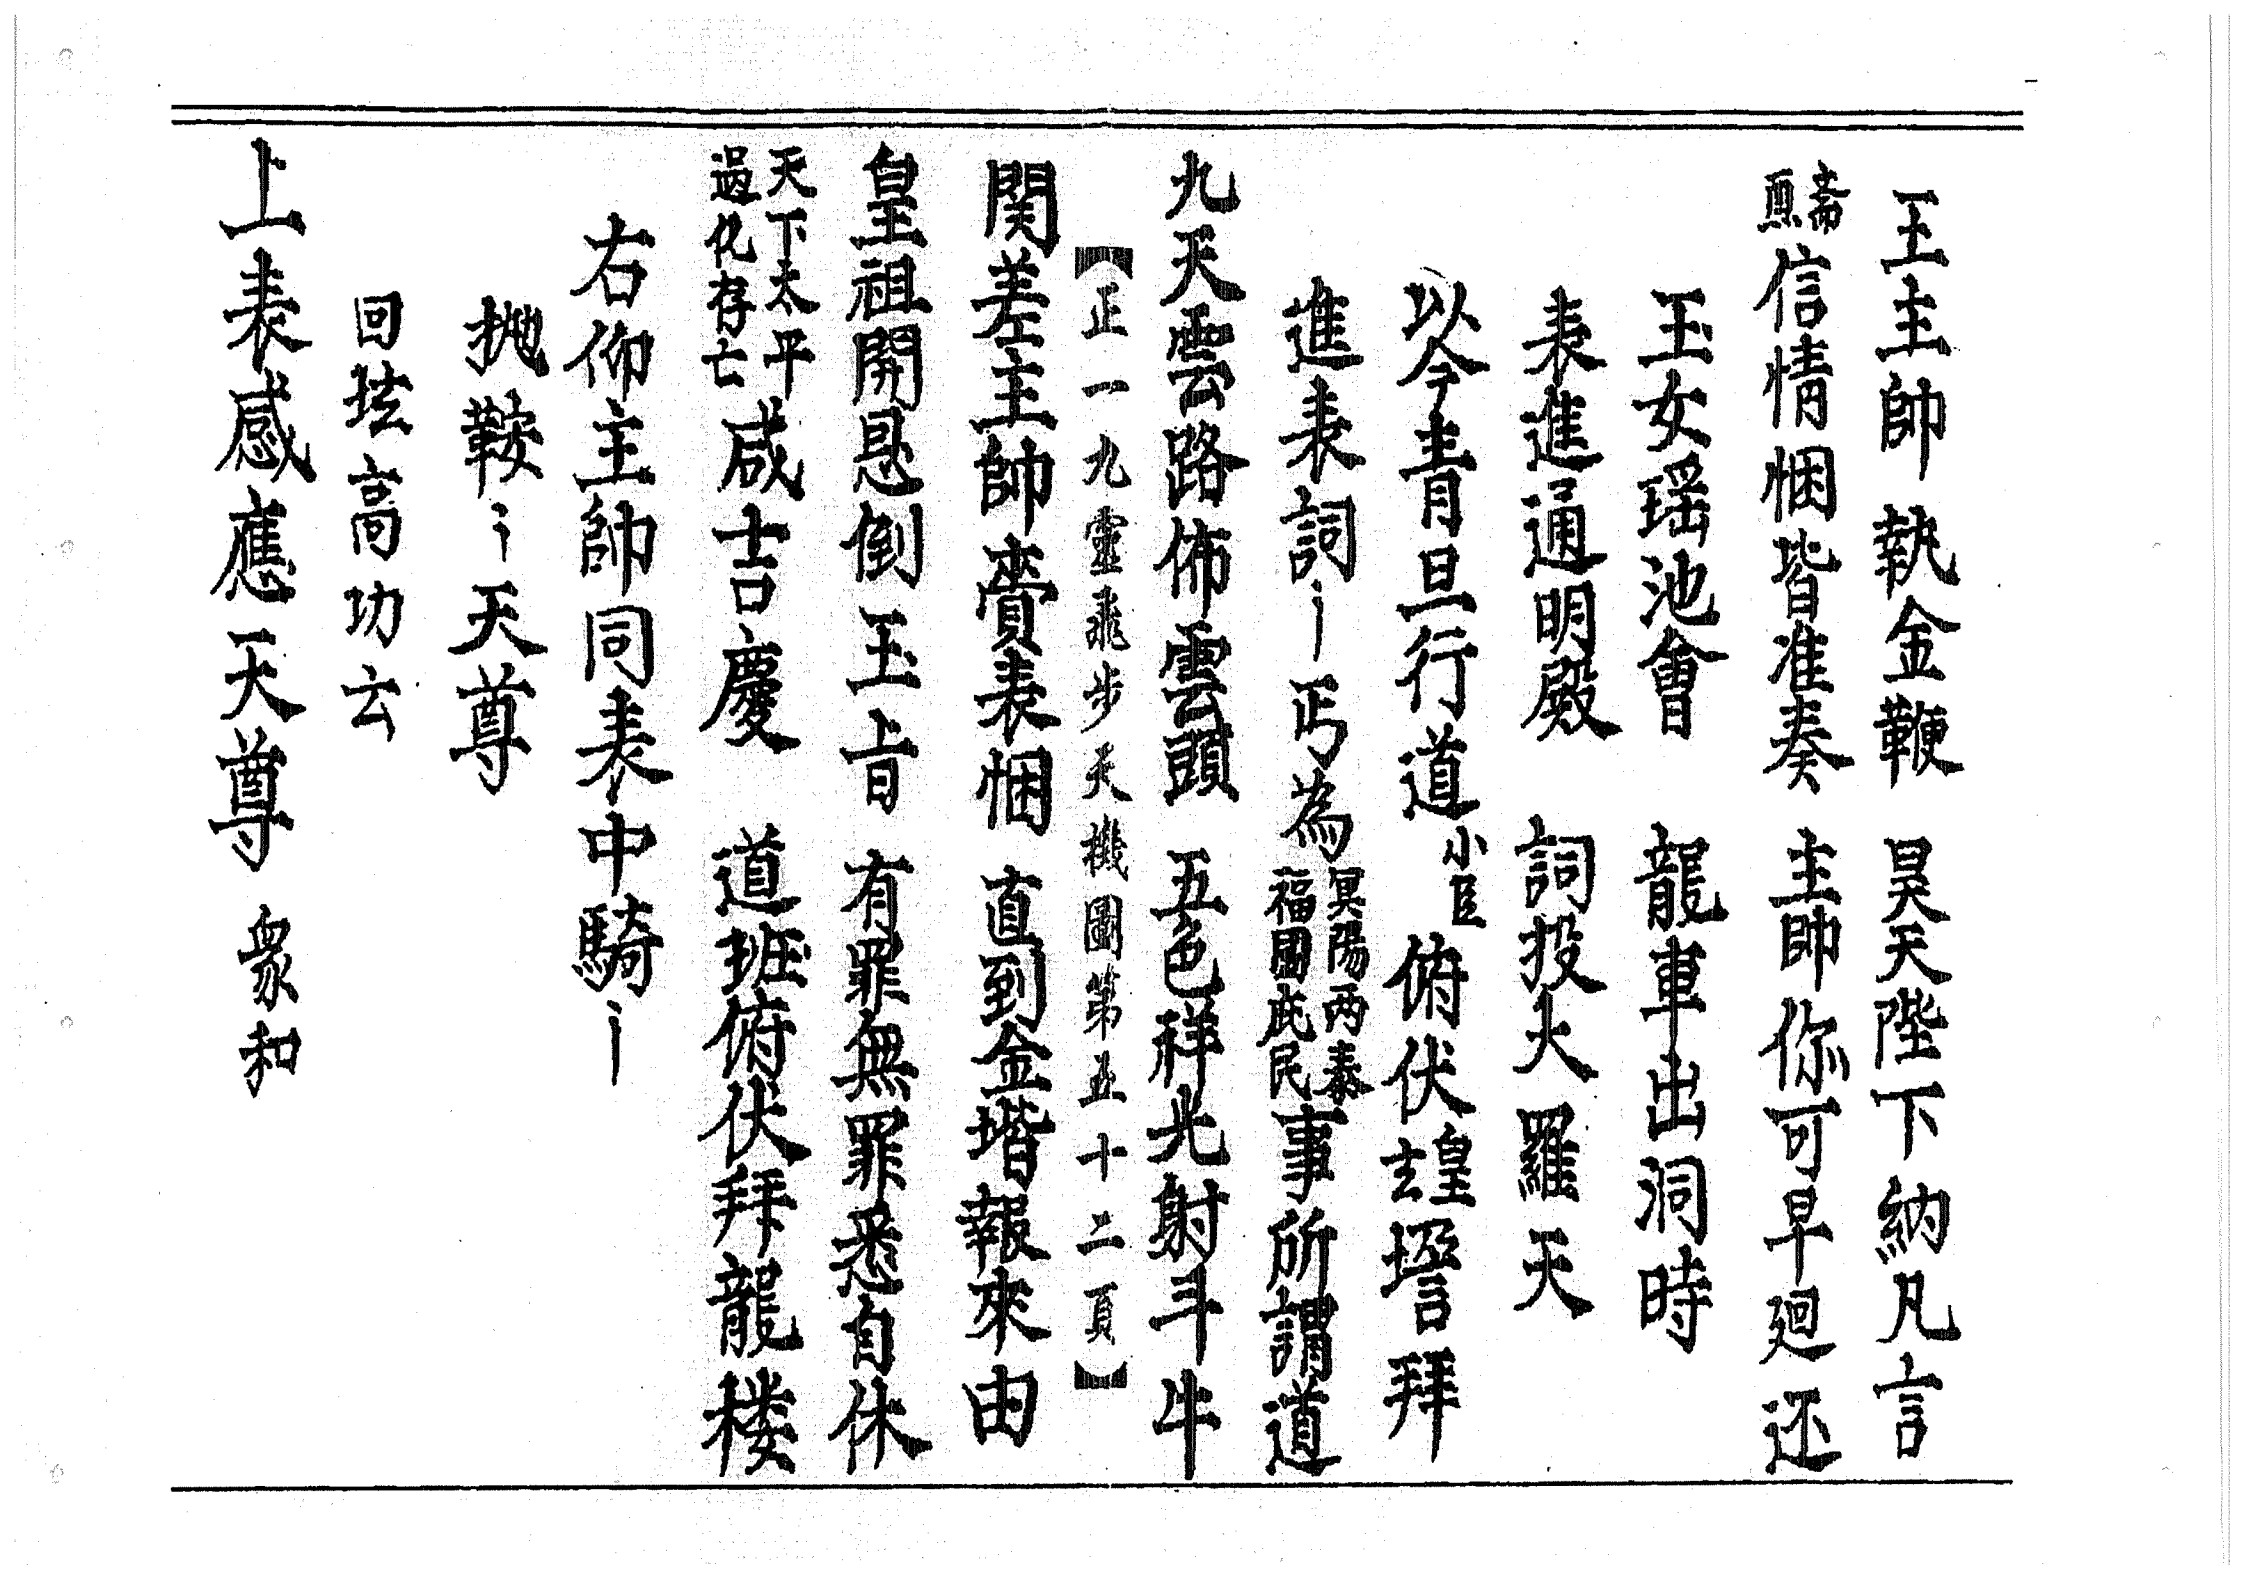 王主帥執金鞭　昊天陛下納凡言
齋熏信情悃皆准奏　主帥你可早廻还
玉女瑶池會　龍車出洞時
表進通明殿　詞投大羅天
以今青旦行道小臣俯伏皇玄壇言拜
進表詞丨丐為冥陽两泰福國庇民事所謂道
九天雲路佈雲頭　五色祥光射斗牛
【正一九靈飛步天機圖第五十二頁】
関差主帥賫表悃　直到金堦報來由
皇祖開恳倒玉旨　有罪無罪悉自休
天下太平過化存亡咸吉慶　道班俯伏拜龍楼
右仰主帥同表中騎丨
拋鞍〻天尊
回坛高功云
上表感應天尊　衆和